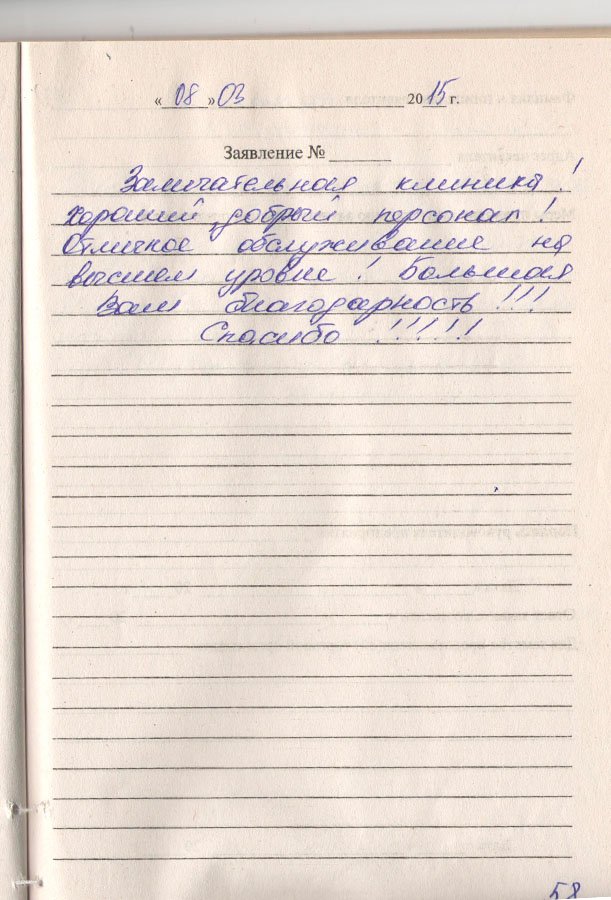 « 08 » 03 2015 г.
Заявление № ______
Замечательная клиника!
Хороший, добрый персонал!
Отличное обслуживание на
высшем уровне! Большая
Вам благодарность!!!
Спасибо !!!!!
58